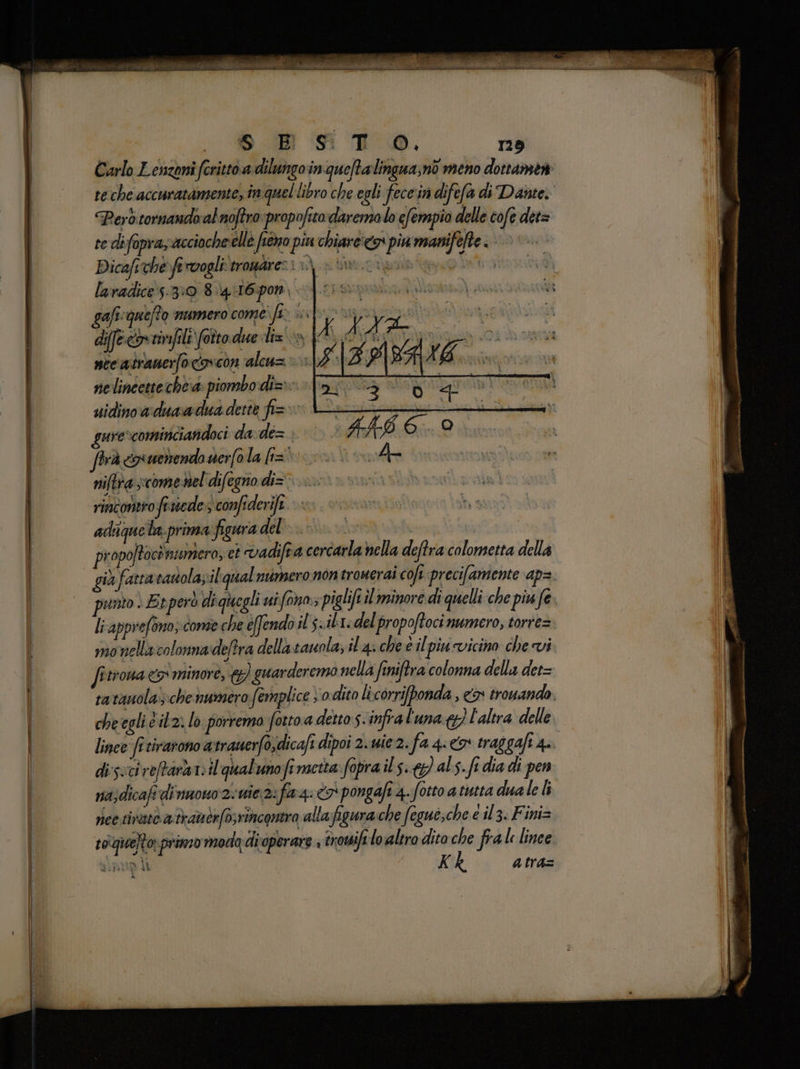 S E S T O. 129
Carlo Lenzoni ſcritto a dilungo in queſta lingua, nō meno dottamen
te che accuratamente, in quel libro che egli fece in difeſa di Dante.
Però tornando al noſtro propoſito daremo lo eſempio delle coſe det=
te di ſopra, accioche elle ſieno piu chiare & piu manifeſte.
Dicaſi che ſi vogli trouare
la radice 5. 3. 0 8. 4. 16 pon
gaſi queſto numero come ſi
diſſe & tirinſili ſotto due li=
nee a trauerſo & con alcu=
ne lineette che a piombo di=
uidino a dua a dua dette fi=
gure cominciandoci da de=
ſtra & uenendo uerſo la ſi=
niſtra, come nel diſegno di=
rincontro ſi uede, conſideriſi
adūque la prima figura del
propoſtoci numero, et vadiſi a cercarla nella deſtra colometta della
già fatta tauola, il qual numero non trouerai coſi preciſamente ap=
punto. Et però di quegli ui ſono, pigliſi il minore di quelli che piu ſe
li appreſono, come che eſſendo il 5. il 1. del propoſtoci numero, torre=
mo nella colonna deſtra della tauola, il 4. che è il piu vicino che vi
ſi troua & minore, & guarderemo nella ſiniſtra colonna della det=
ta tauola, che numero ſemplice, o dito li corriſponda, & trouando
che egli è il 2. lo porremo ſotto a detto 5. infra l'una & l'altra delle
linee ſi tirarono a trauerſo, dicaſi dipoi 2. uie 2. fa 4. & traggaſi 4.
di 5. ci reſtarà 1. il qual uno ſi metta ſopra il 5. & al 5. ſi dia di pen
na, dicaſi di nuouo 2. uie 2. fa 4. & pongaſi 4. ſotto a tutta dua le li
nee tirate a trauerſo, rincontro alla figura che ſegue, che è il 3. Fini=
to queſto primo modo di operare, trouiſi lo altro dito che fra le linee
Kk atra=